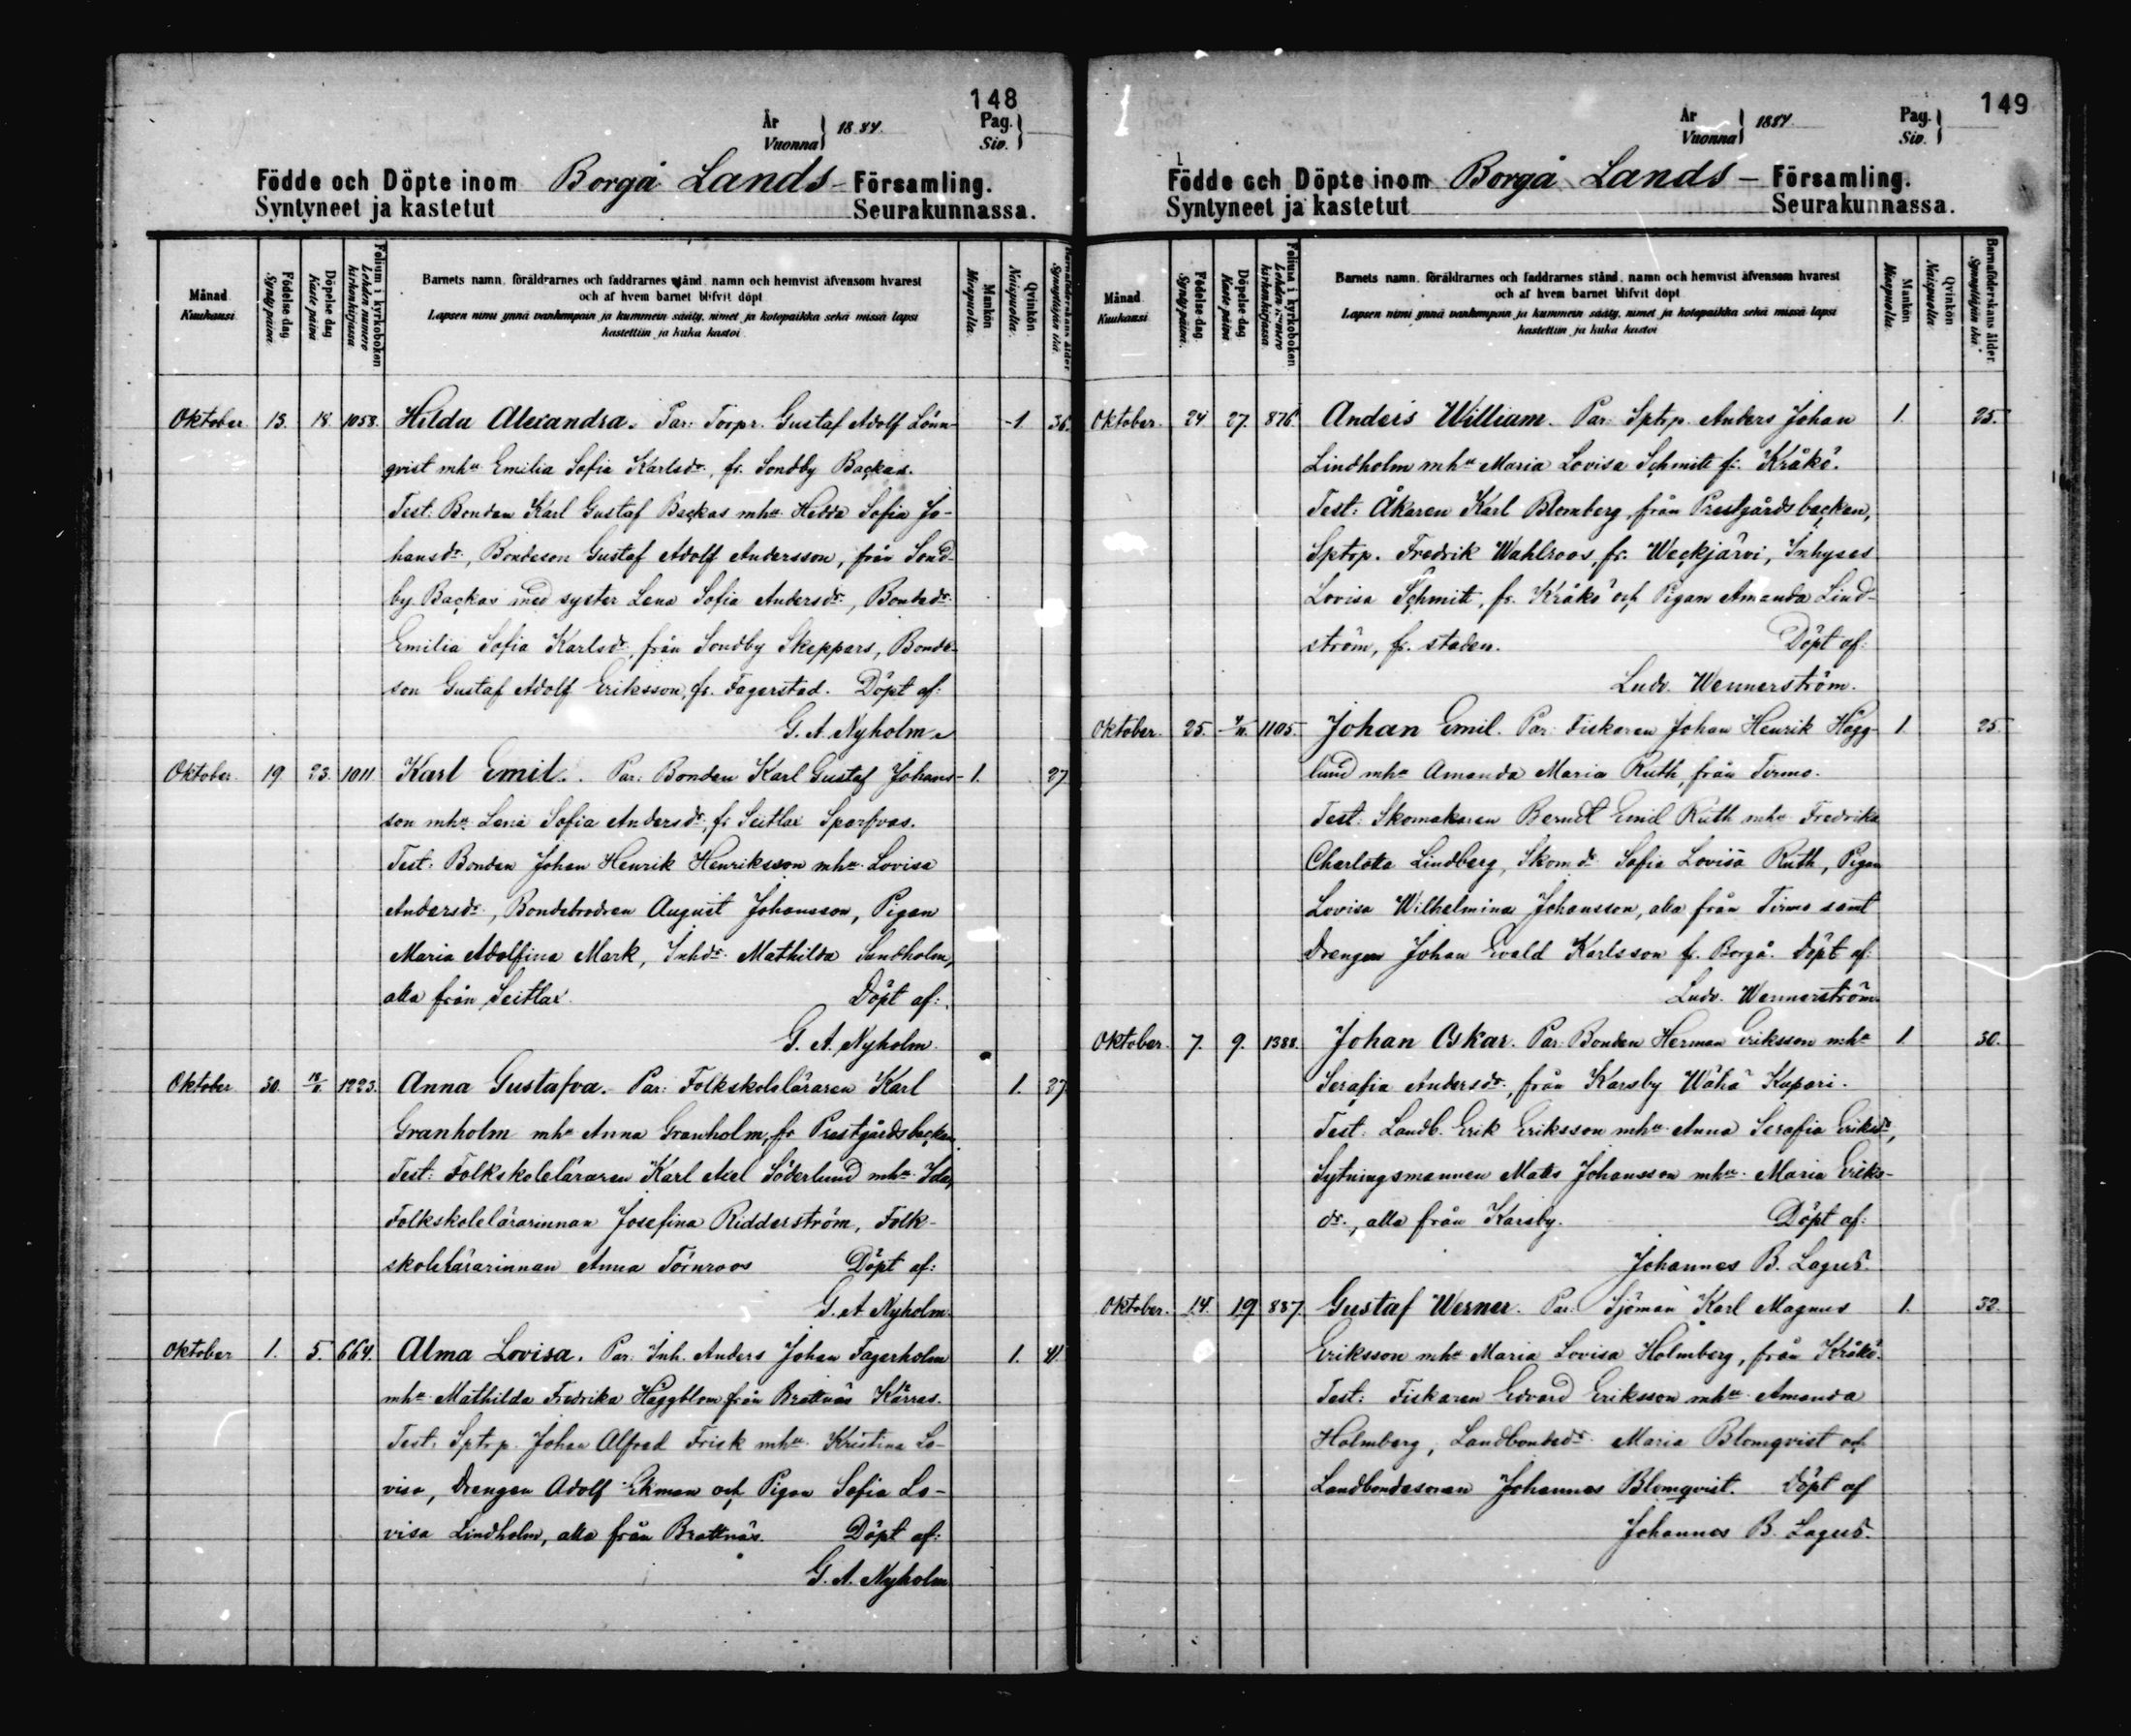 148
År
Vuonna } 1884.
Pag.
Siv. }
Födde och Döpte inom Borgå Lands- Församling.
Syntyneet ja kastetut Seurakunnassa.
Månad.
Kuukausi.
Födelse dag
Synty päivä.
Döpelse dag
Kaste päivä
Folium i kyrkoboken
Lehden numero kirkonkirjassa
Barnets namn, föräldrarnes och faddrarnes stånd, namn och hemvist äfvensom hvarest
och af hvem barnet blifvit döpt
Lapsen nimi ynnä vanhempain ja kummein sääty, nimet ja kotopaikka sekä missä lapsi
kastettiin ja kuka kastoi
Mankön
Miespuolta.
Qvinkön
Naispuolta.
Barnaföderskans ålder
Synnyttäjän ikä.
Oktober 15. 18. 1058. Hilda Alexandra. Par: Torpr. Gustaf Adolf Lönn- 1 36.
qvist mhu Emilia Sofia Karlsdr., fr. Sondby Backas.
Test: Bonden Karl Gustaf Backas mhu Hedda Sofia Jo-
hansdr., Bondeson Gustaf Adolf Andersson, från Sond-
by Backas med syster Lena Sofia Andersdr., Bondedr.
Emilia Sofia Karlsdr., från Sondby Skeppars, Bonde-
son Gustaf Adolf Eriksson, fr. Fagerstad. Döpt af:
G. A. Nyholm.
Oktober 19. 23. 1011 Karl Emil. Par: Bonden Karl Gustaf Johans- 1. 27
son mhu Lena Sofia Andersdr., fr Seitlax Sparfvas.
Test: Bonden Johan Henrik Henriksson mhu Lovisa
Andersdr., Bondebrodren August Johansson, Pigan
Maria Adolfina Mark, Inhdr. Mathilda Sundholm,
alla från Seitlax. Döpt af:
G. A. Nyholm.
Oktober 30. 1223. Anna Gustafva. Par: Folkskoleläraren Karl 1. 27
Granholm mhu Anna Granholm, fr Prestgårdsbacken,
Test: Folkskoleläraren Karl Axel Söderlund mhu Ida,
Folkskolelärarinnan Josefina Ridderström, Folk-
skolelärarinnan Anna Törnroos Döpt af:
G. A Nyholm.
Oktober 1. 5. 664. Alma Lovisa. Par: Inh. Anders Johan Fagerholm 1. 41.
mhu Mathilda Fredrika Häggblom från Brattnäs Kärras.
Test: Sptrp. Johan Alfred Frisk mhu Kristina Lo-
visa, Drengen Adolf Ekman och Pigan Sofia Lo-
visa Lindholm, alla från Brattnäs. Döpt af:
G. A. Nyholm
149
År
Vuonna } 1884.
Pag.
Siv. }
Födde och Döpte inom Borgå Lands- Församling.
Syntyneet ja kastetut Seurakunnassa.
Månad.
Kuukausi.
Födelse dag
Synty päivä.
Döpelse dag
Kaste päivä
Folium i kyrkoboken
Lehden numero kirkonkirjassa
Barnets namn, föräldrarnes och faddrarnes stånd, namn och hemvist äfvensom hvarest
och af hvem barnet blifvit döpt
Lapsen nimi ynnä vanhempain ja kummein sääty, nimet ja kotopaikka sekä missä lapsi
kastettiin ja kuka kastoi
Mankön
Miespuolta.
Qvinkön
Naispuolta.
Barnaföderskans ålder.
Synnyttäjän ikä.
Oktober. 24 27. 876. Anders William. Par: Sptrp. Anders Johan 1. 25.
Lindholm mhu Maria Lovisa Schmitt fr. Kråkö.
Test: Åkaren Karl Blomberg, från Prestgårdsbacken,
Sptrp. Fredrik Wahlroos, fr. Weckjärvi, Inhyses
Lovisa Schmitt, fr. Kråkö och Pigan Amanda Lind-
ström, fr. staden. Döpt af:
Ludv. Wennerström.
Oktober. 25. 1105. Johan Emil. Par: Fiskaren Johan Henrik Hägg- 1. 25.
lund mhu Amanda Maria Ruth, från Tirmo.
Test: Skomakaren Berndt Emil Ruth mhu Fredrika
Charlotta Lindberg, Skomdr Sofia Lovisa Ruth, Pigan
Lovisa Wilhelmina Johansson, alla från Tirmo samt
Drengen Johan Evald Karlsson fr. Borgå. Döpt af:
Ludv. Wennerström.
Oktober. 7. 9. 1388. Johan Oskar. Par: Bonden Herman Eriksson mhu 1. 30.
Serafia Andersdr., från Karsby Wähä Kupari.
Test: Landb. Erik Eriksson mhu Anna Serafia Eriksdr,
Sytningsmannen Matts Johansson mhu Maria Eriks-
dr., alla från Karsby. Döpt af:
Johannes B. Lagus.
Oktober. 14. 19 887. Gustaf Werner. Par: Sjöman Karl Magnus 1. 32.
Eriksson mhu Maria Lovisa Holmberg, från Kråkö.
Test: Fiskaren Edvard Eriksson mhu Amanda
Holmberg, Landbondedr. Maria Blomqvist och
Landbondesonen Johannes Blomqvist. Döpt af
Johannes B. Lagus.